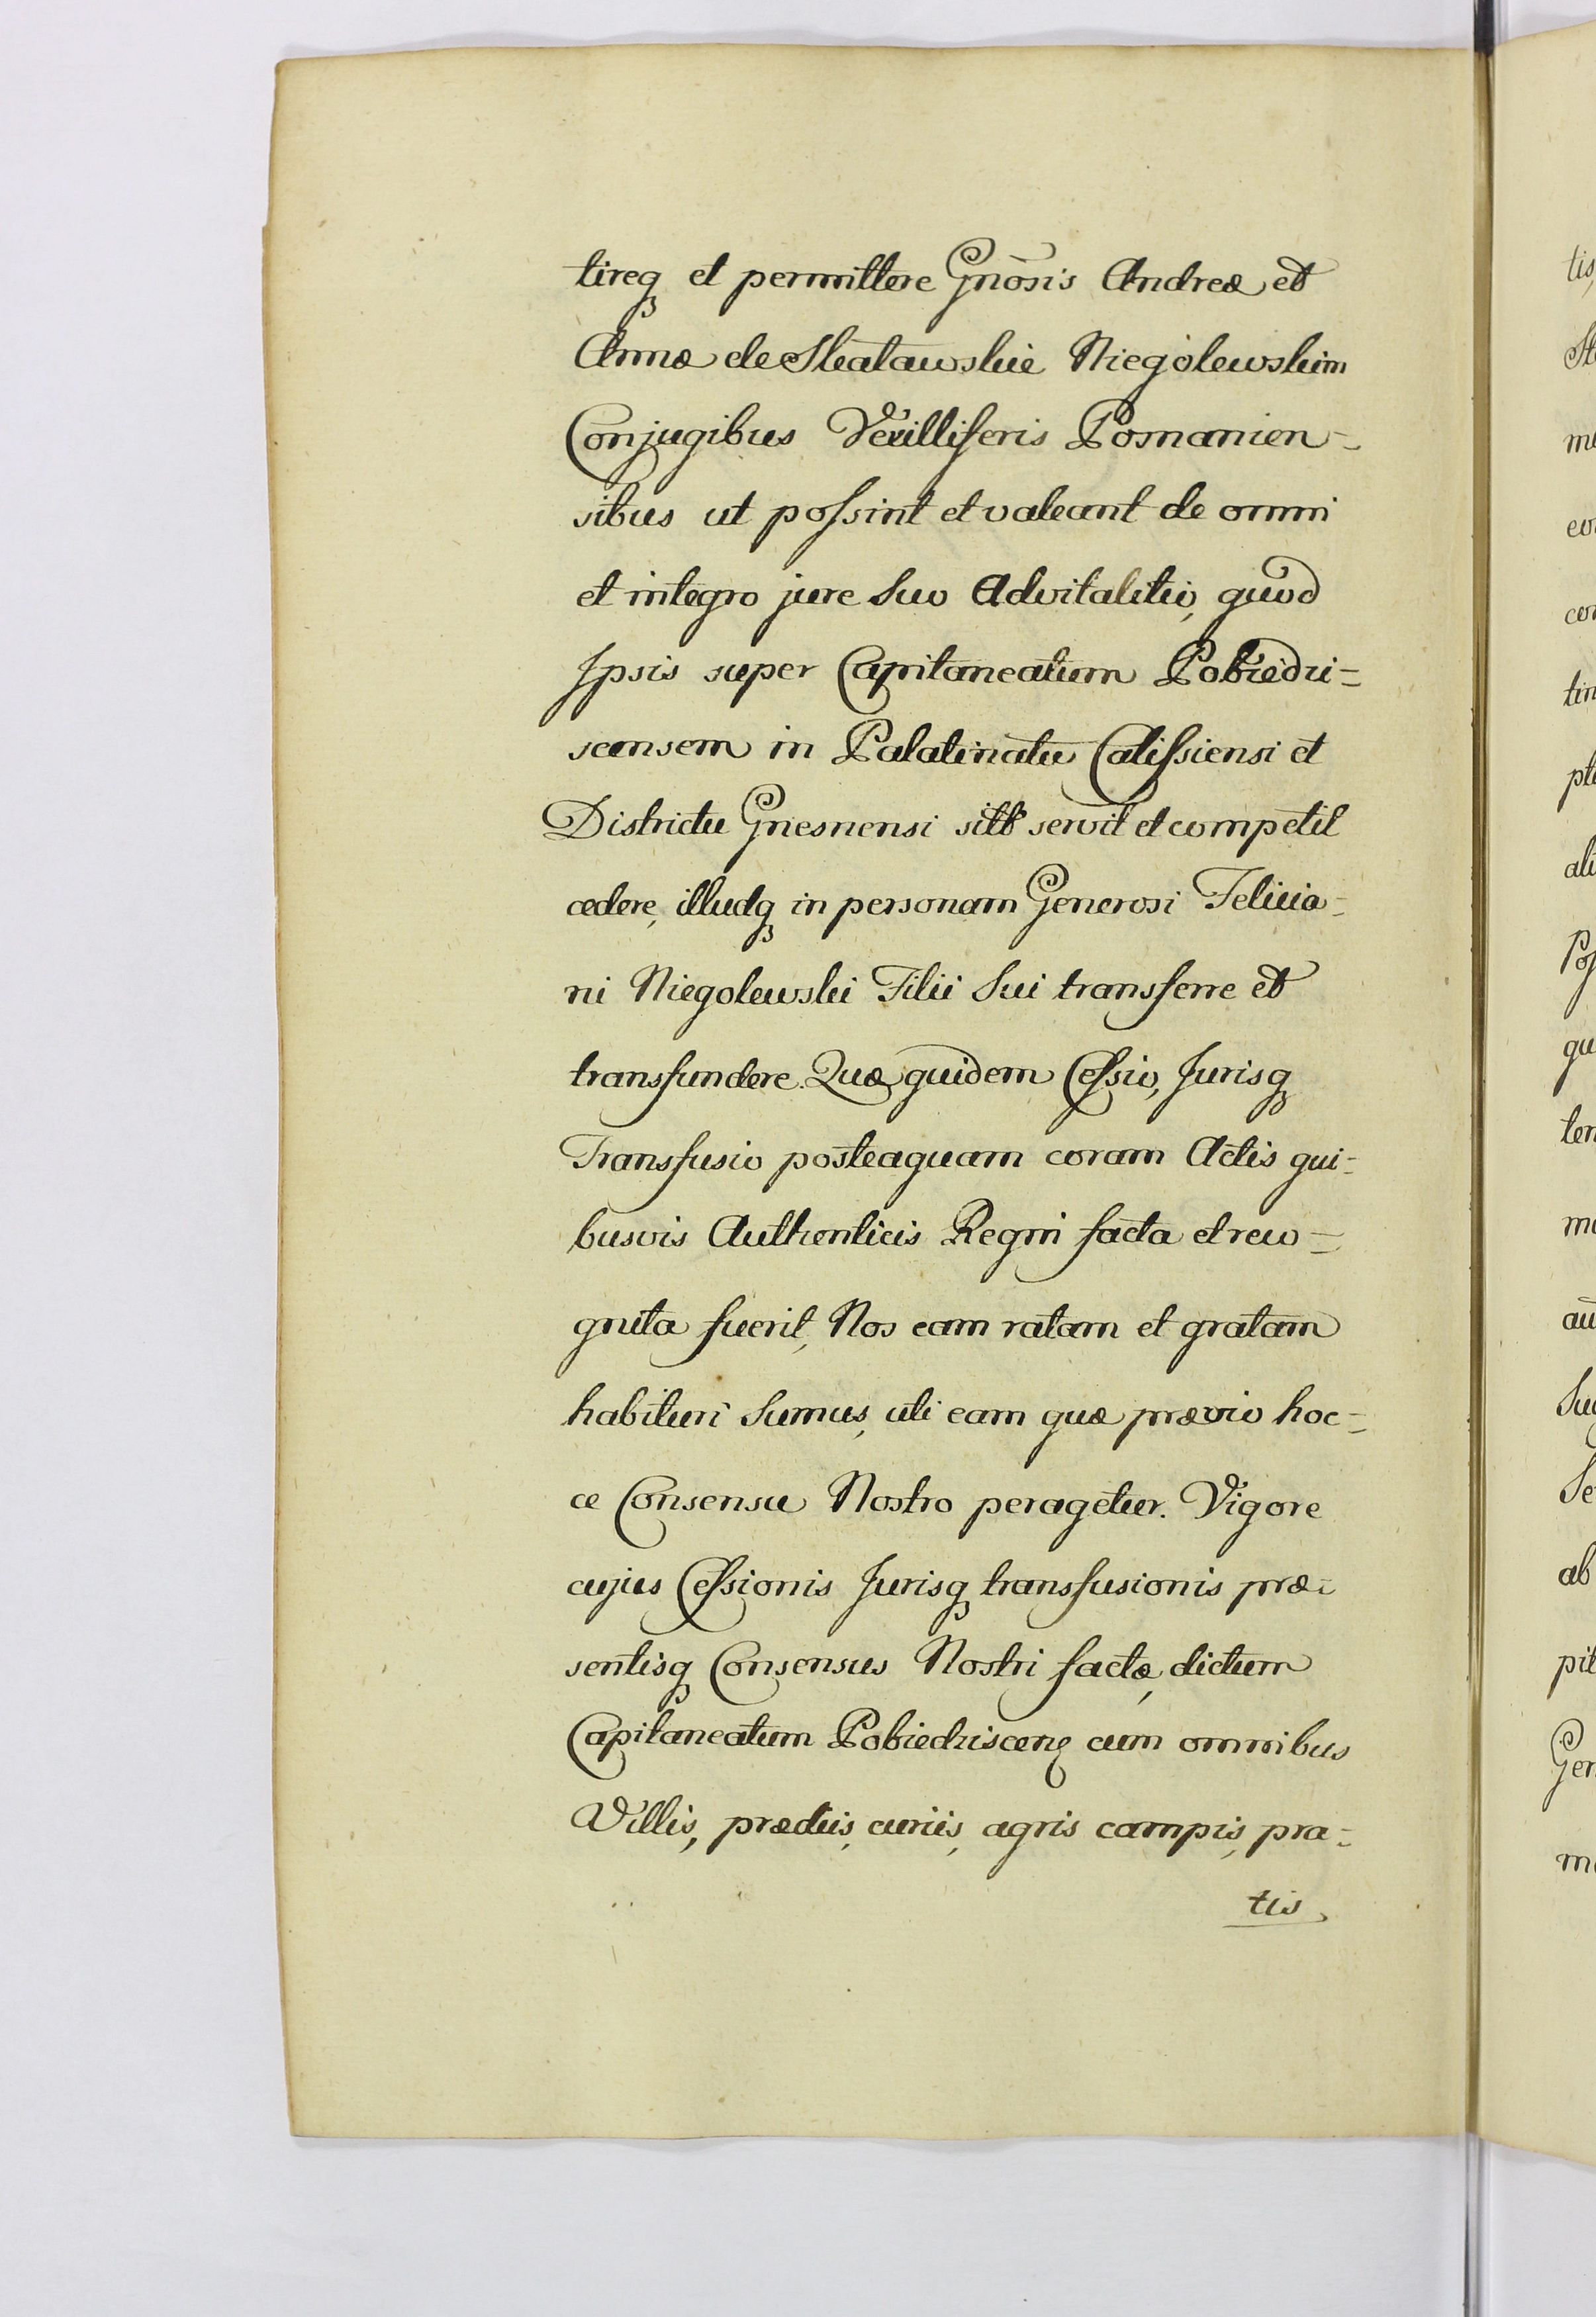 tireq et permittere Gnõsis Andreæ et
Annæ de Skaławskie Niegolewskim
Conjugibus Vexilliferis Posnanien=
sibus ut possint et valeant de omni
et integro jure Suo Advitalitio, quod
Ipsis super Capitaneatum Pobiedzi=
scensem in Palatinatu Calissiensi et
Districtu Gnesnensi sitũ servit et competit
cedere, illudq in personam Generosi Felicia=
ni Niegolewski Filii Sui transferre et
transfundere. Quæ quidem Cessio, Jurisq
Transfusio posteaquam coram Actis qui=
busvis Authenticis Regni facta et reco=
gnita fuerit, Nos eam ratam et gratam
habituri Sumus, uti eam quæ prævio hoc=
ce Consensu Nostro peragetur. Vigore
cujus Cessionis Jurisq transfusionis præ=
sentisq Consensus Nostri factæ, dictum
Capitaneatum Pobiedziscens cum omnibus
Villis, prædiis, curiis, agris campis, pra=
tis